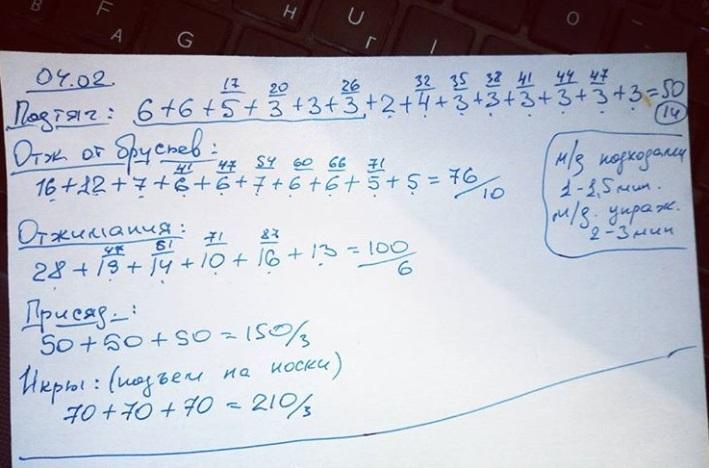 В F H U О
А G Г I
04.02.
17 20 26 32 35 38 41 44 47
Подтяг: 6+6+5+3+3+3+2+4+3+3+3+3+3+3=50
14
Отж от брусьев:
41 47 54 60 66 71
16+12+7+6+6+7+6+6+5+5=76/10
м/д подходами
1-1,5 мин.
м/д. упраж.
2-3 мин
Отжимания:
47 61 71 87
28+19+14+10+16+13=100/6
Присяд.:
50+50+50=150/3
Икры: (подъем на носки)
70+70+70=210/3